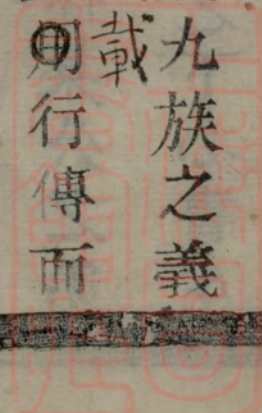 九族之義
載
行傳而